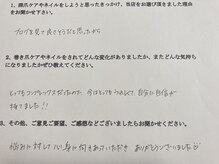 1. 深爪ケアやネイルをしようと思ったきっかけ、当店をお選び頂きました理由
をお聞かせ下さい。
ブログを見て良さそうだと思ったから
2. 巻き爪ケアやネイルをされてどんな変化がありましたか、また どんな気持ち
になりましたかぜひ教えてください。
とってもコンプレックスだったので、今はとてもうれしくて、自分に自信が
持てました!!
3. その他、ご意見ご要望、ご感想などございましたらお聞かせください。
悩みに対して心身に向き合っていただき ありがとうございました